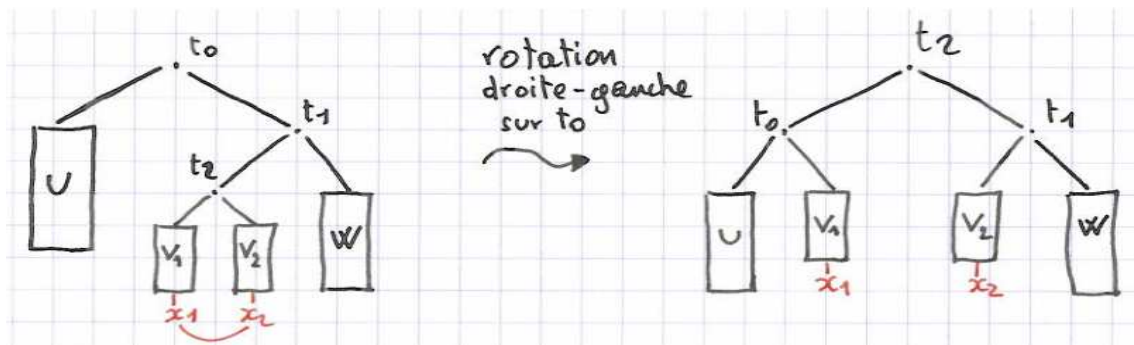 t0
t1
t2
U
V1
V2
W
x1
x2
rotation
droite-gauche
sur t0
t2
t0
t1
U
V1
V2
W
x1
x2